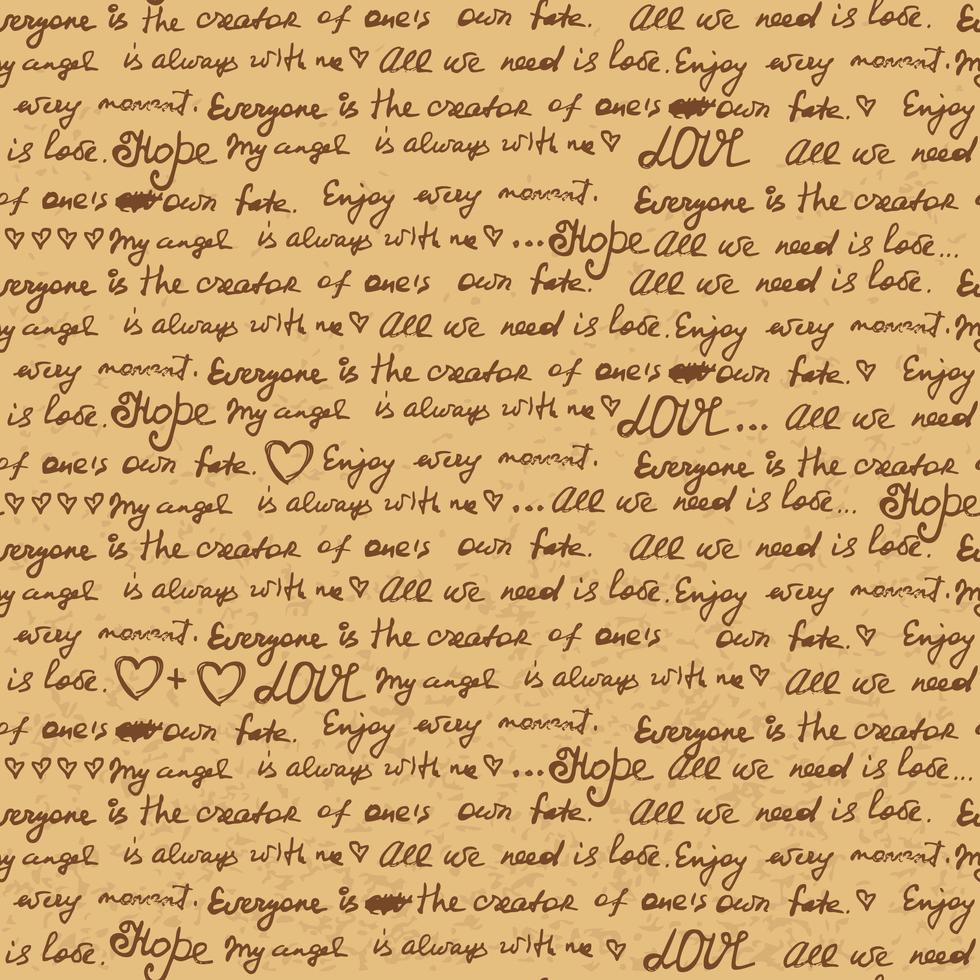 veryone is the creator of one's own fate. All we need is love. Ev
y angel is always with me ♡ All we need is love. Enjoy every moment. M
every moment. Everyone is the creator of one's own fate. ♡ Enjoy
is love. Hope My angel is always with me ♡ LOVE All we need
of one's own fate. Enjoy every moment. Everyone is the creator
♡♡♡♡ My angel is always with me ♡ ... Hope All we need is love...
veryone is the creator of one's own fate. All we need is love. Ev
y angel is always with me ♡ All we need is love. Enjoy every moment. M
every moment. Everyone is the creator of one's own fate. ♡ Enjoy
is love. Hope My angel is always with me ♡ LOVE ... All we need
of one's own fate. ♡ Enjoy every moment. Everyone is the creator
♡♡♡♡ My angel is always with me ♡ ... All we need is love... Hope
veryone is the creator of one's own fate. All we need is love. Ev
y angel is always with me ♡ All we need is love. Enjoy every moment. M
every moment. Everyone is the creator of one's own fate. ♡ Enjoy
is love. ♡ + ♡ LOVE My angel is always with me ♡ All we need
of one's own fate. Enjoy every moment. Everyone is the creator
♡♡♡♡ My angel is always with me ♡ ... Hope All we need is love...
veryone is the creator of one's own fate. All we need is love. Ev
y angel is always with me ♡ All we need is love. Enjoy every moment. M
every moment. Everyone is the creator of one's own fate. ♡ Enjoy
is love. Hope My angel is always with me ♡ LOVE All we need